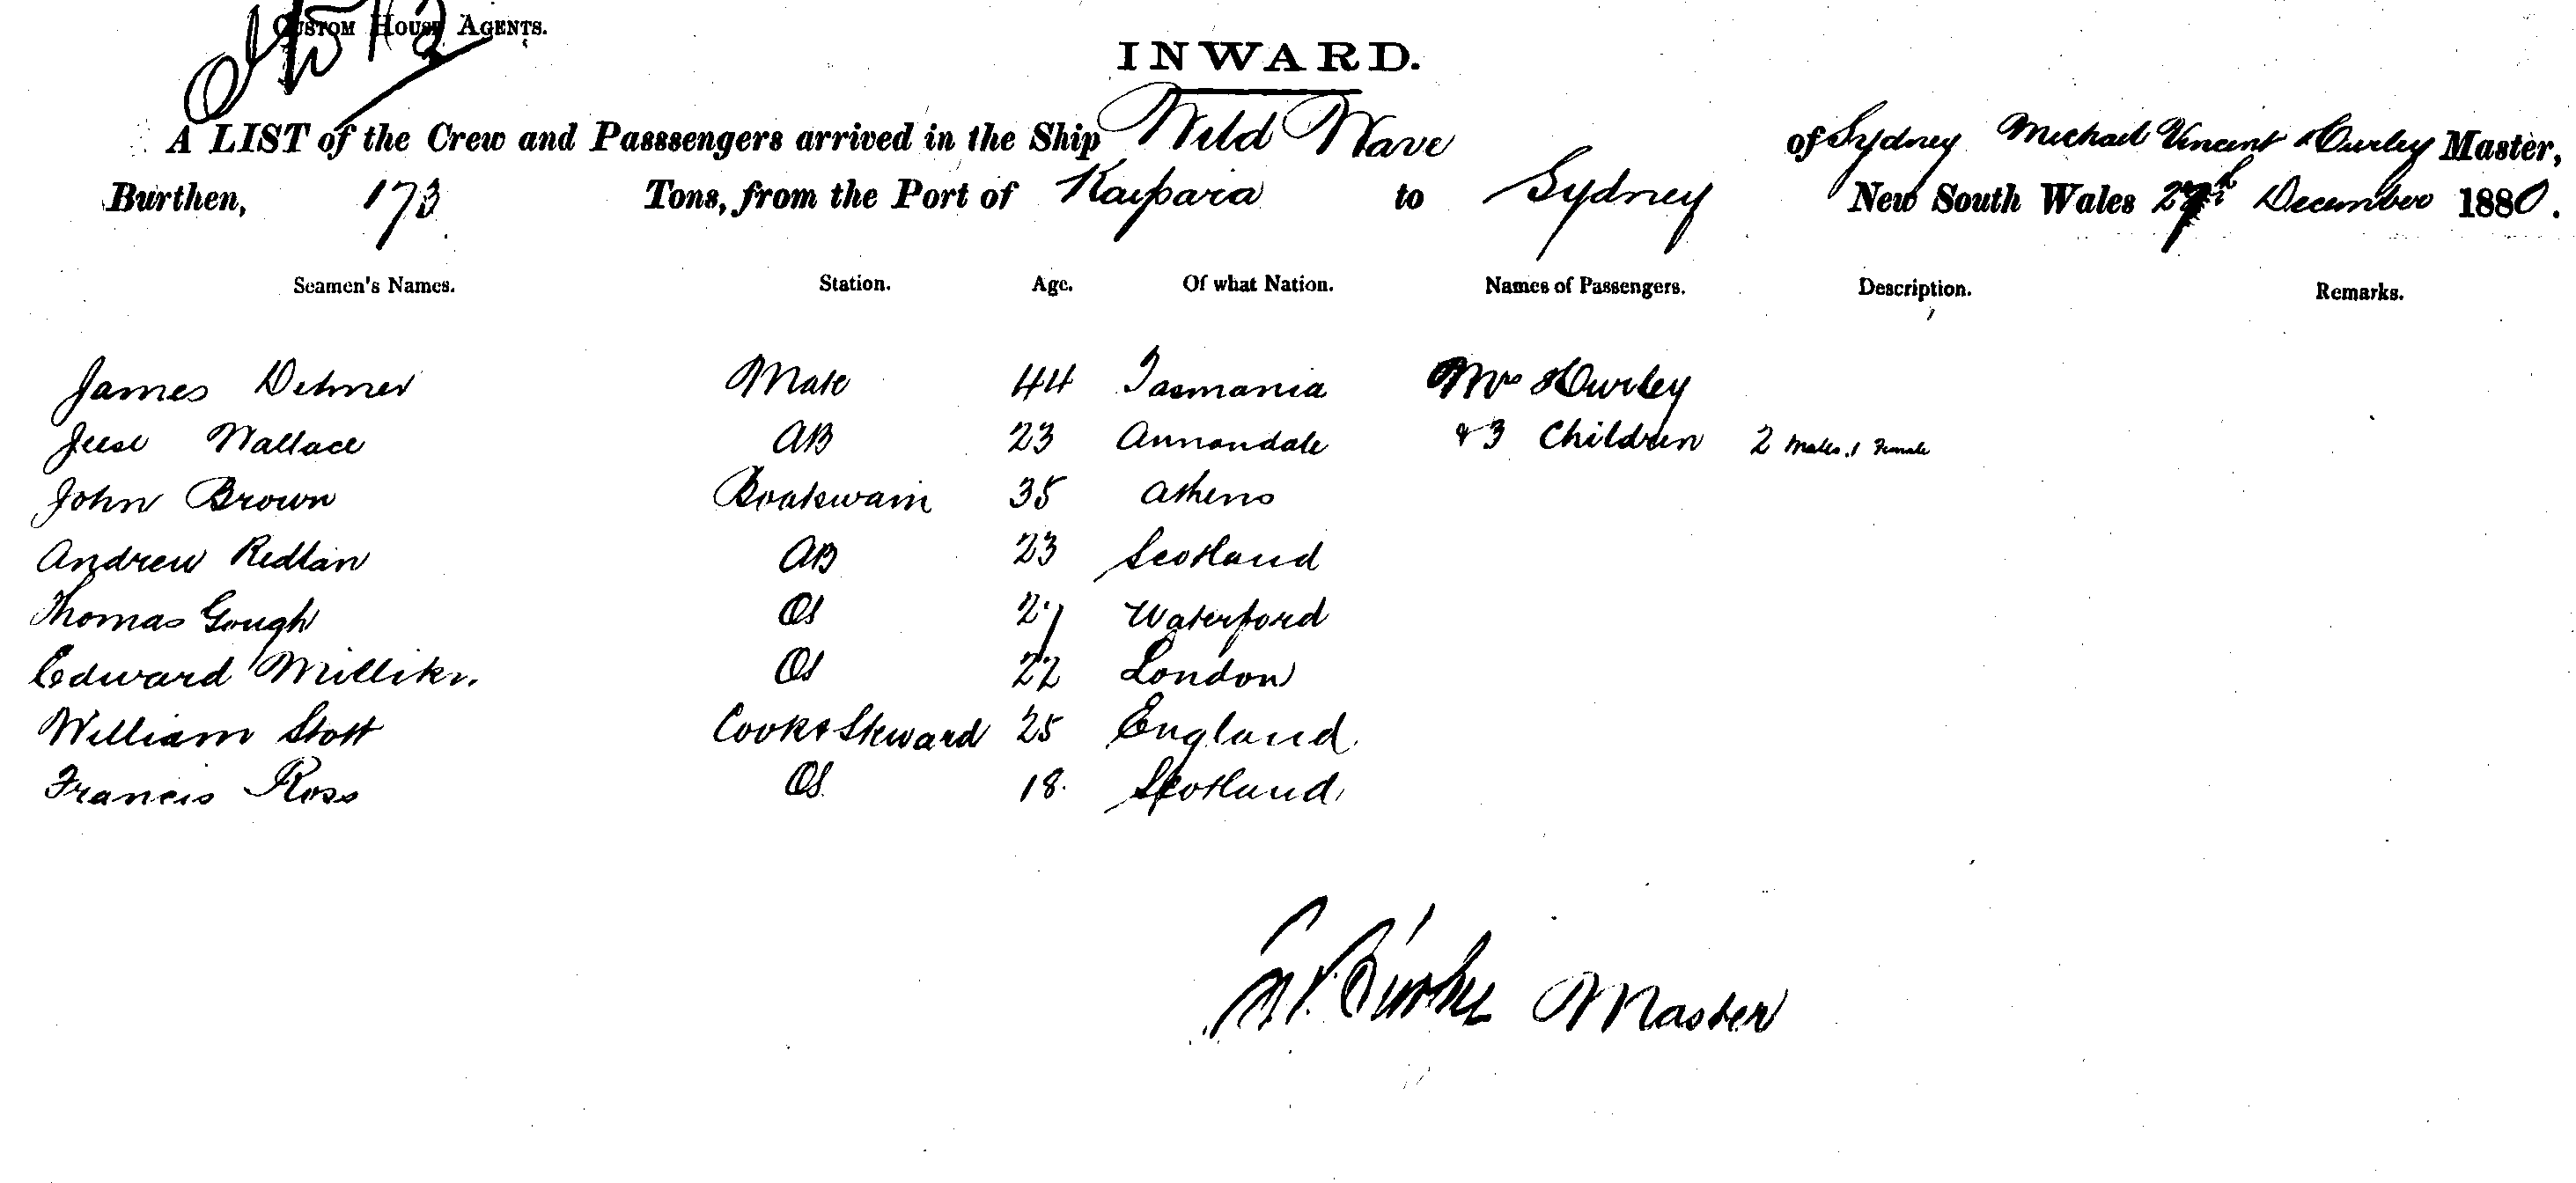 CUSTOM HOUSE AGENTS.
INWARD.
A LIST of the Crew and Passsengers arrived in the Ship Wild Wave of Sydney Michael Vincent Hurley Master,
Burthen, 173 Tons, from the Port of Kaipara to Sydney New South Wales 27th December 1880.
Seamen's Names. Station. Age. Of what Nation. Names of Passengers. Description. Remarks.
James Mate 44 Tasmania Mrs Hurley
Jesse Wallace AB 23 Annandale & 3 Children 2 Males, 1 Female
John Brown Boatswain 35 Athens
Andrew Redlan AB 23 Scotland
Thomas Gough OS 27 Waterford
Edward Millikn. OS 22 London
William Stott Cook & Steward 25 England.
Francis Ross OS. 18. Scotland
Master